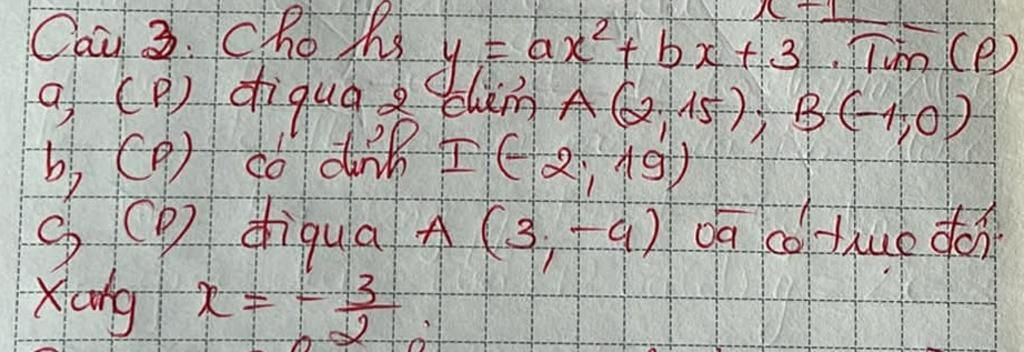 Câu 3. Cho hs y = ax² + bx + 3. Tìm (P)
a, (P) đi qua 2 điểm A(2;15), B(-1;0)
b, (P) có đỉnh I(-2; 19)
c, (P) đi qua A (3; -4) và có trục đối
xứng x = -3/2.